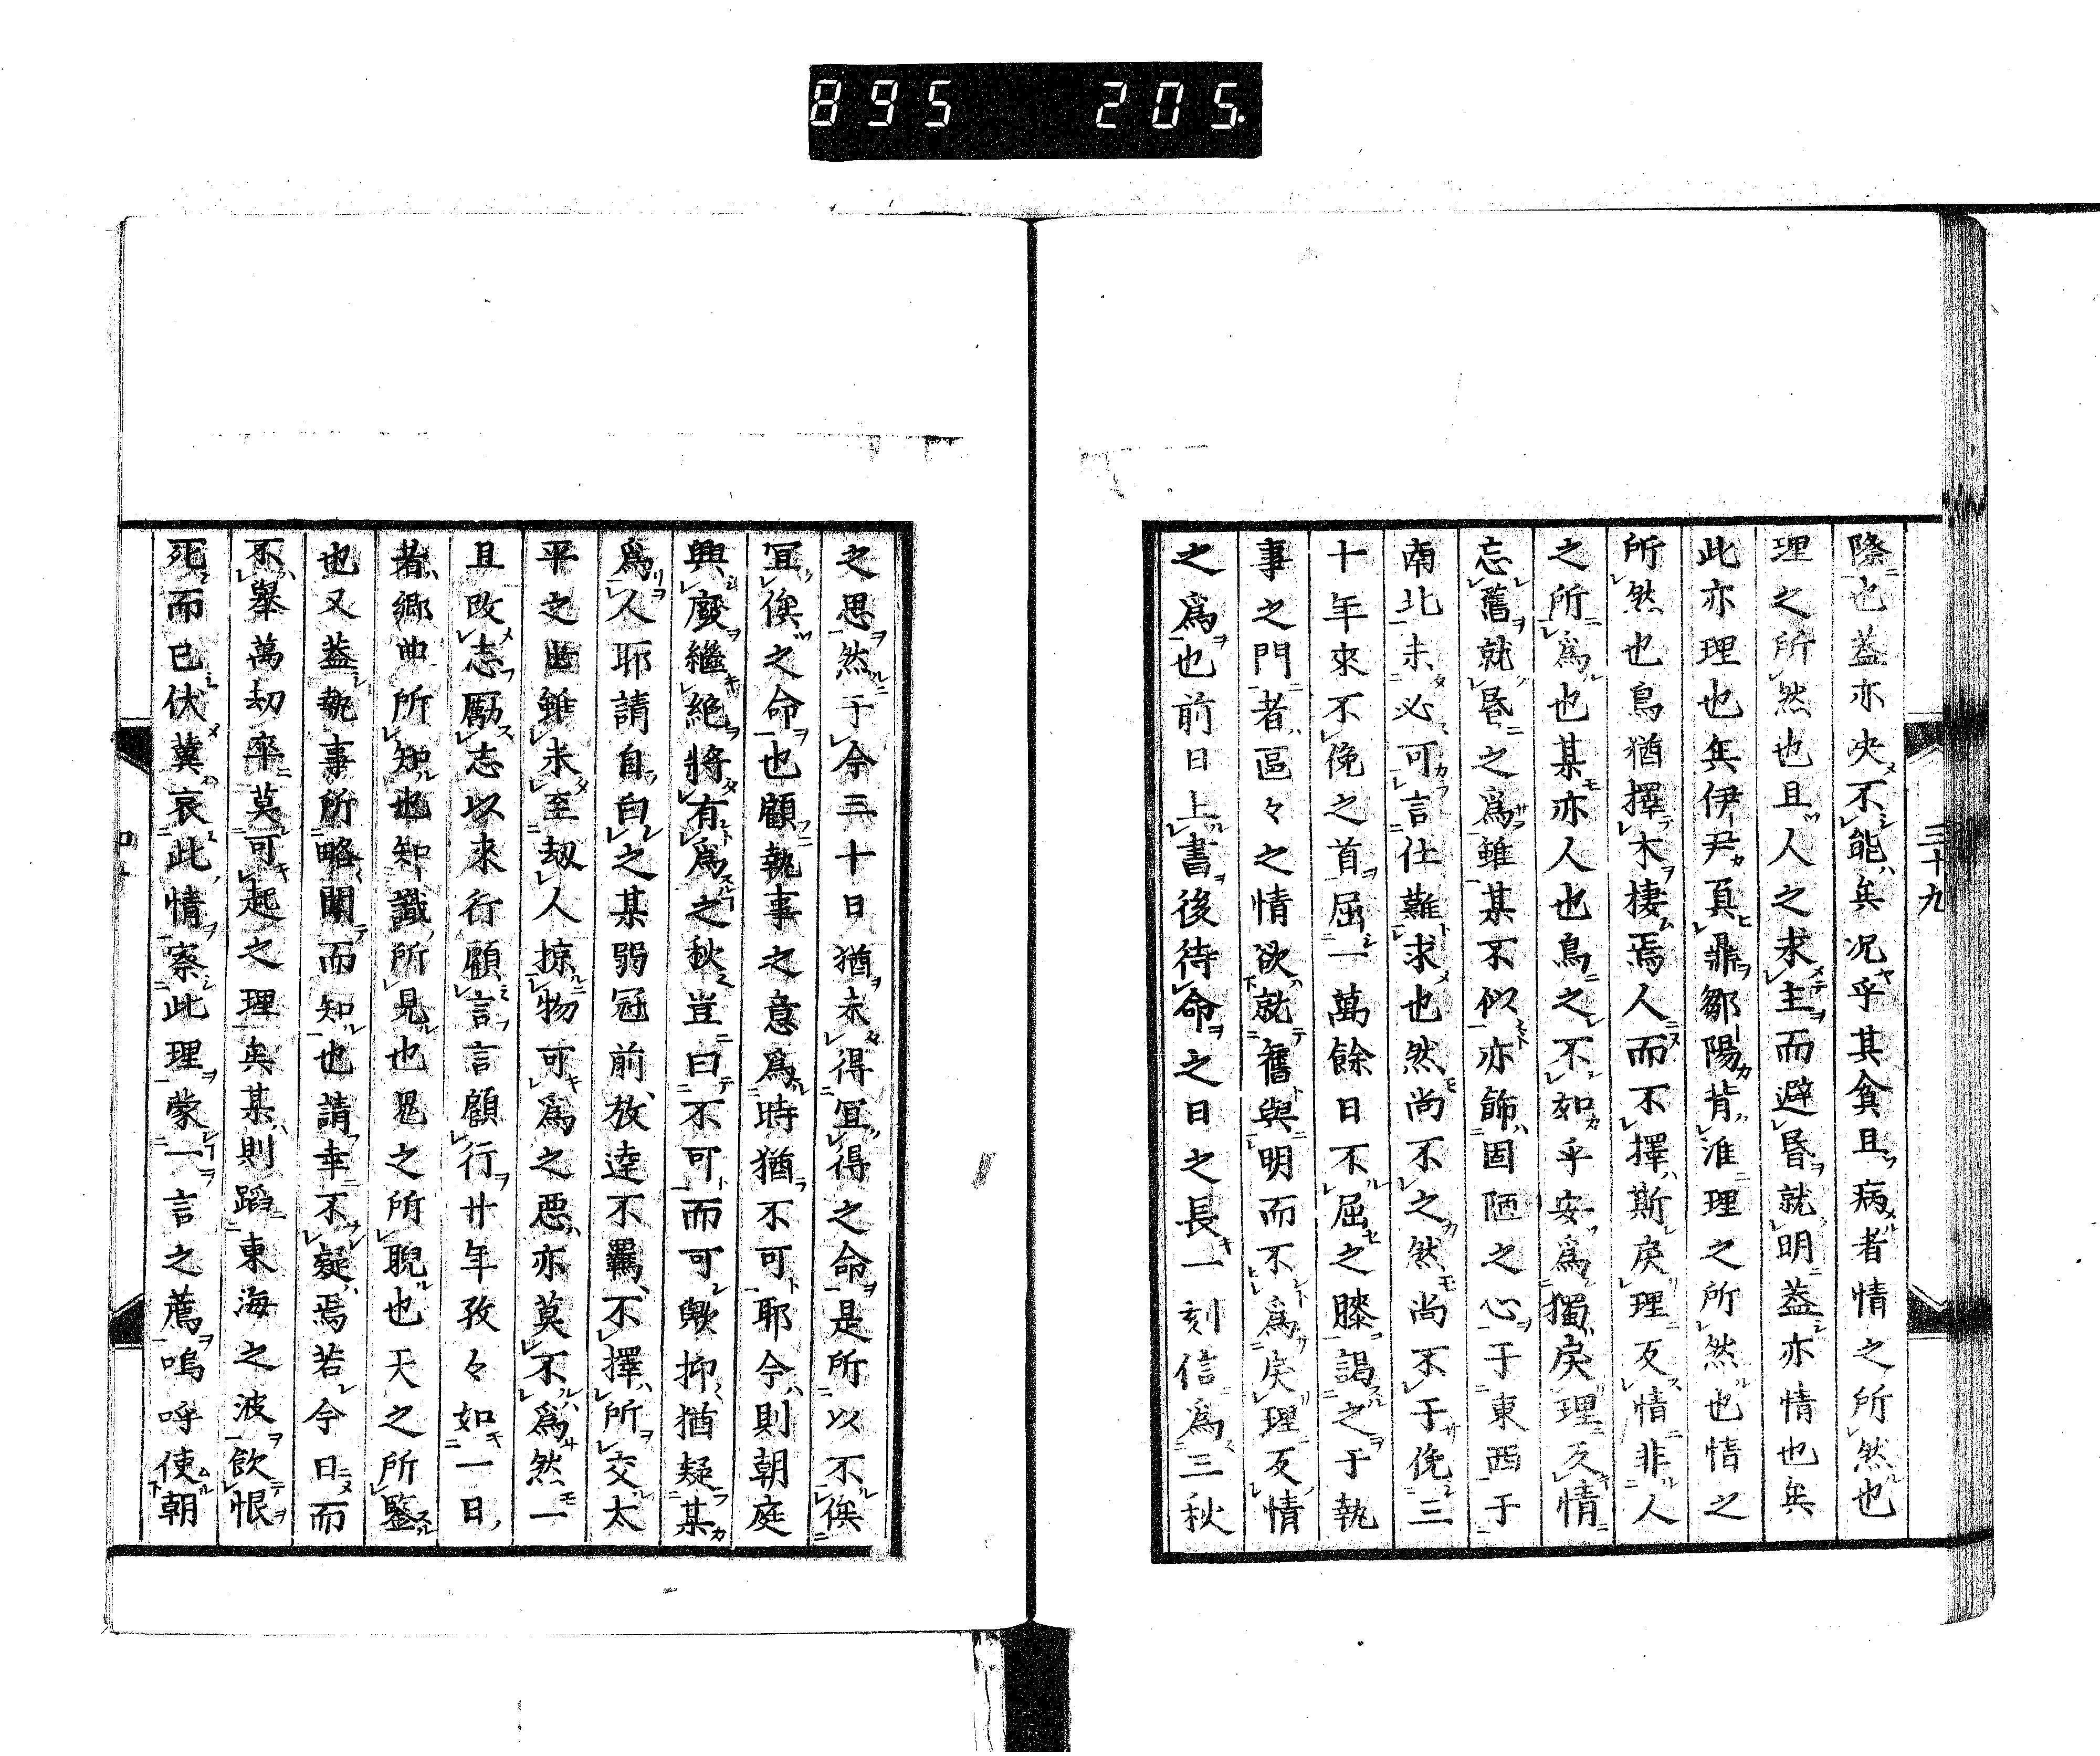 895 205.
三十九
際也葢亦决不能矣况乎其貧且病者情之所然也
理之所然也且人之求主而避昬就明葢亦情也矣
此亦理也矣伊尹負鼎鄒陽背淮理之所然也情之
所然也鳥猶擇木棲焉人而不擇斯戾理反情非人
之所爲也某亦人也鳥之不如乎安爲獨戾理反情
忘舊就昬之爲雖某不似亦飾固陋之心于東西于
南北未必可言仕難求也然尚不之然尚不于俛三
十年來不俛之首屈一萬餘日不屈之膝謁之于執
事之門者區々之情欲就舊與明而不爲戾理反情
之爲也前日上書後待命之日之長一刻信爲三秋
之思然于今三十日猶未得冝得之命是所以不俟
冝俟之命也顧執事之意爲時猶不可耶今則朝庭
興廢繼絕將有爲之秋豈曰不可而可歟抑猶疑某
爲人耶請自白之某弱冠前放達不羈不擇所交太
平之世雖未至刼人掠物可爲之惡亦莫不爲然一
且改志勵志以來行顧言言顧行廿年孜々如一日
者鄉曲所知也知識所見也鬼之所睨也天之所鑒
也又葢執事所略聞而知也請幸不疑焉若今日而
不舉萬劫卒莫可起之理矣某則蹈東海之波飲恨
死而已伏冀哀此情察此理蒙一言之薦嗚呼使朝